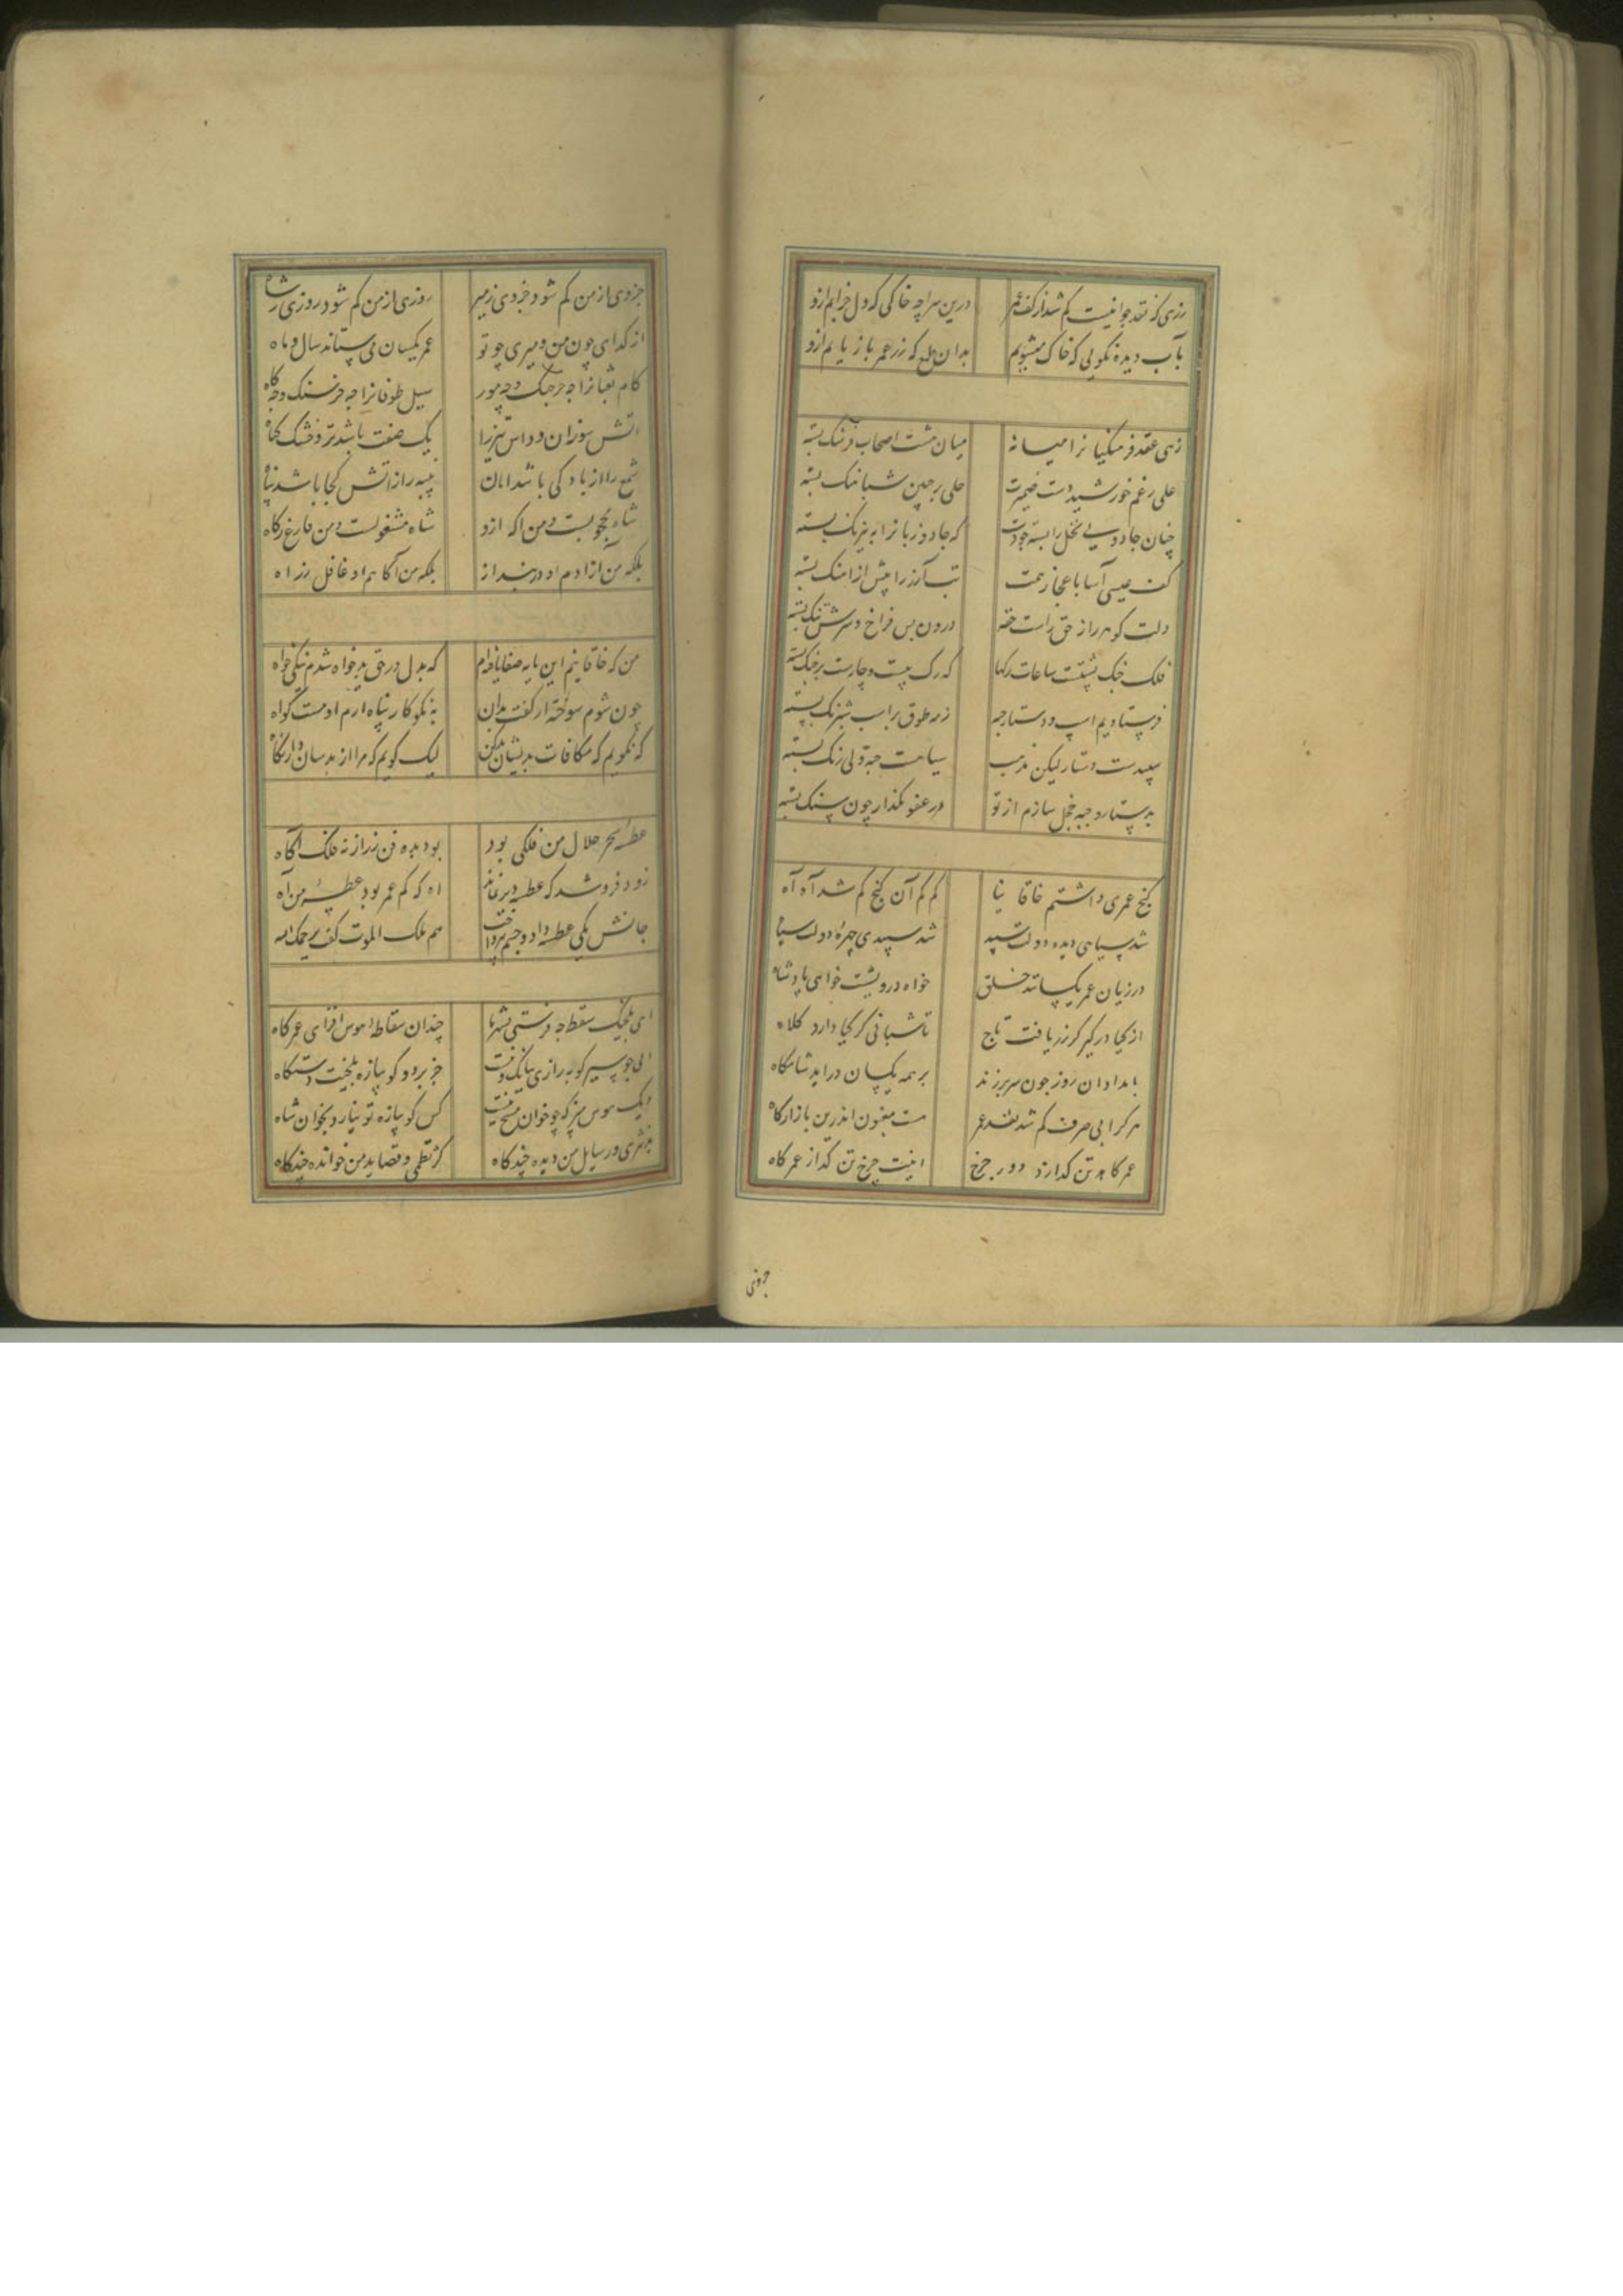 زری که نقد جوانیست کم شد از کف عمر درین سراچه خاکی که دل خرابم ازو
بآب دیده نکویی که خاک میشویم بدان طمع که زر عمر باز یابم ازو
زهی عقد فرهنکیانرا میانه میان مشت اصحاب فرهنک بسته
علی رغم خورشید دست ضمیرت حلی بر جبین شباهنک بسته
چنان جادویی بخل را بسته جودت که جادو زبانرا به نیرنک بسته
کف عیسی آسا باعجاز رحمت تب آز را پیش از آهنک بسته
دلت کوهر راز حق راست حقه درون بس فراخ و سرش تنک بسته
فلک خنک پشتت ساعات رکها که رک بیست و چارست بر خنک بسته
فرستادیم اسپ و دستار جبه زمه طوق بر اسب شبرنک بسته
سپیدست دستار لیکن مذهب سیاهست جبه ولی زنک بسته
بدستار و جبه خجل سازم از تو در عفو مکذار چون سنک بسته
کنج عمری داشتم خاقانیا کم کم آن کنج کم شد آه آه
شد سیاهی دیده دولت سپید شد سپیدی چهره دولت سیاه
در زیان عمر یکسانند خلق خواه درویشست خواهی پادشاه
از کیا در کیر کرزر یافت تاج تا شبانی کز کیا دارد کلاه
بامدادان روز چون سر برزند بر همه یکسان دراید شامکاه
هر کرا بی صرف کم شد نقد عمر هست مغبون اندرین بازارکاه
عمر کاهد تن کدازد دور چرخ اینت چرخ تن کداز عمر کاه
جزوی
جزوی از من کم شود جزوی ز میر روزی از من کم شود روزی ز شاه
از کدای چون من و میری چو تو عمر یکسان می ستاند سال و ماه
کام ثعبانرا چه خرچنک و چه مور سیل طوفانرا چه خرسنک و چه کاه
اتش سوزان و داس تیز را یک صفت باشد تر و خشک کیاه
شمع را از باد کی باشد امان پنبه را ز اتش کجا باشد پناه
شاه محجوبست و من اکه ازو شاه مشغولست و من فارغ ز کاه
بلکه من ازادم او دربند از بلکه من آکاهم او غافل ز راه
من که خاقانیم این مایه صفا یافته‌ام که بدل در حق بدخواه شدم نیکی خواه
چون شوم سوخته از کفت بدان به نکوکار پناه ارم او هست کواه
که نکویم که مکافات بدیشان بد کن لیک کویم که مرا از بدسان دار نکاه
عطسه سحر حلال من فلکی بود بود بده فن ز راز نه فلک آکاه
زود فرو شد که عطسه دیر نماند اه که کم عمر بود عطسه من آه
جانش یکی عطسه داد و جسم بپرداخت هم ملک الموت کفت یرحمک الله
ای بلخیک سقط چه فرستی بشهر ما چندان سقاطه هوس افزای عمر کاه
کس کو پیازه تو نیارد بخوان شاه
نثری و رسایل من دیده چند کاه کز نظمی و قصاید من خوانده چند کاه